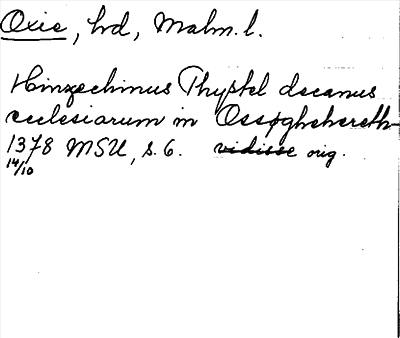 Oxie, hd, Malm. l.
Hinzechinus Thyptel decanus
ecclesiarum in Ossøghehæreth
1378 MSU, s. 6. vidisse orig.
14/10